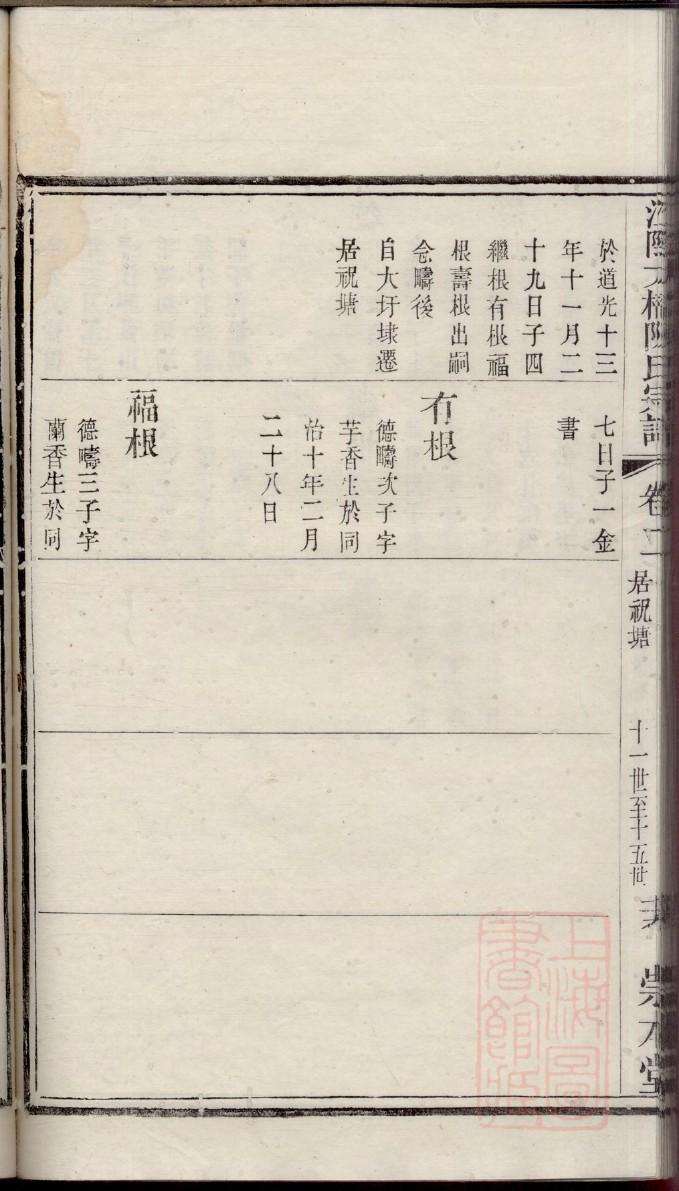 江陰大橋陳氏宗譜
卷二
居祝塘
十一世至十五世
崇本堂
於道光十三
年十一月二
十九日子四
繼根有根福
根壽根出嗣
念疇後
自大圩埭遷
居祝塘
七日子一金
書
有根
德疇次子字
芋香生於同
治十年二月
二十八日
福根
德疇三子字
蘭香生於同
上海圖
書館藏